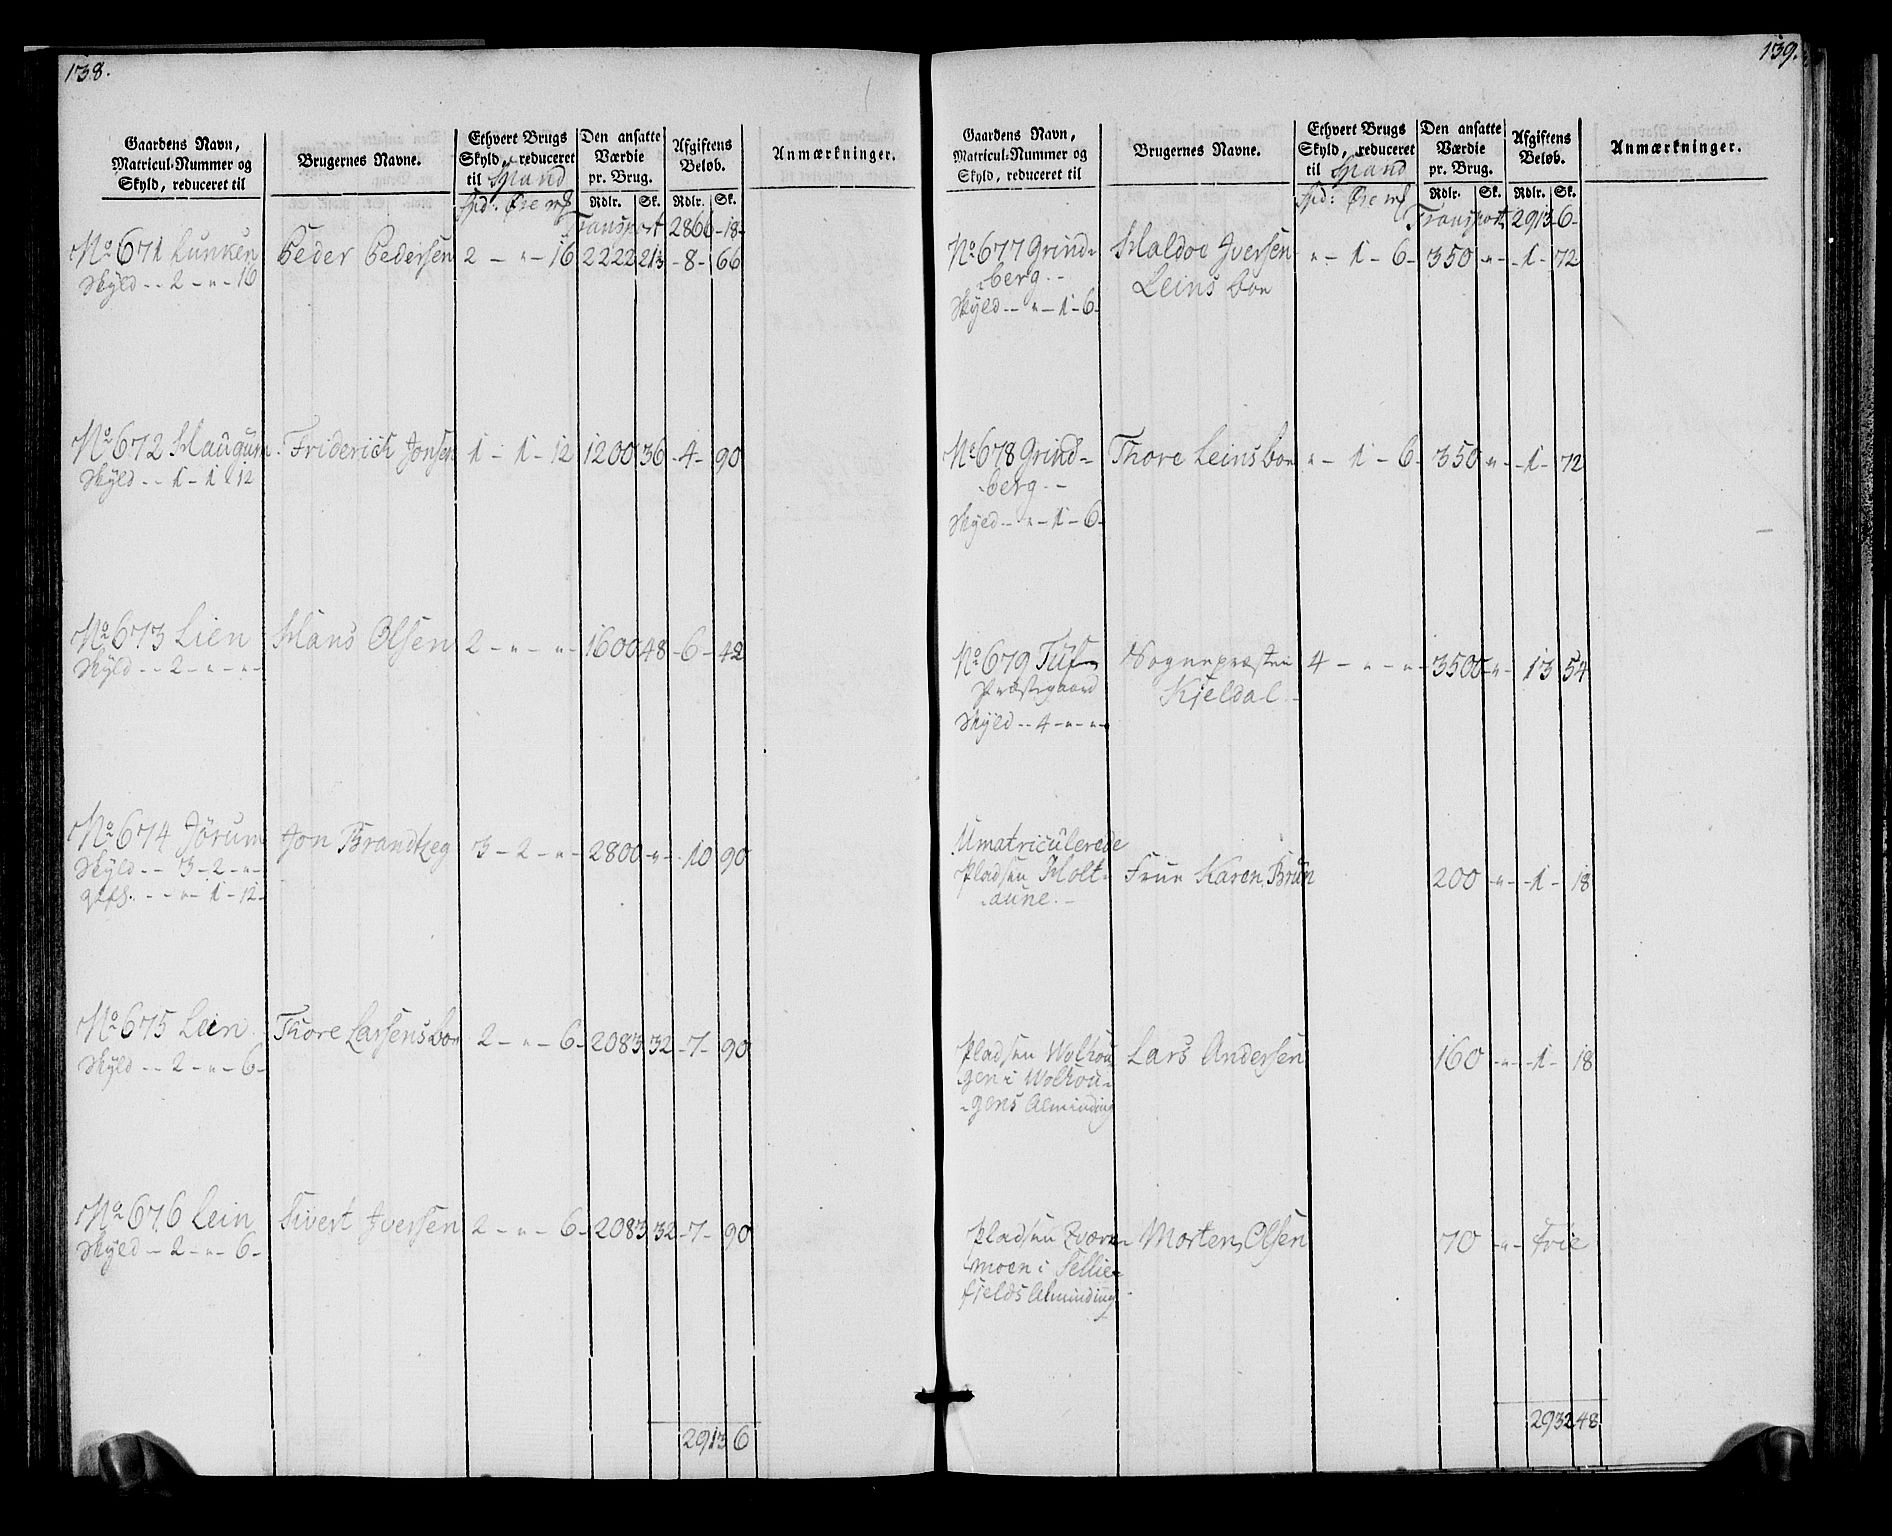 138.
Gaardens Navn,
Matricul-Nummer og
Skyld, reduceret til
Brugernes Navne.
Ethvert Brugs
Skyld, reduceret
til Spand
Spd: Øre mſ
Den ansatte
Værdie
pr. Brug.
Rdlr. Sk.
Afgiftens
Beløb.
Rdlr. Sk.
Anmærkninger.
Transport 2866 - 18 -
No 671 Lunken Peder Pedersen 2 - " - 16 2222 21 - 8 - 66
Skyld - - 2 - " - 16
No 672 Haugum Friderich Jonsen 1 - 1 - 12 1200 36 - 4 - 90
Skyld - - 1 - 1 - 12
No 673 Lien Hans Olsen 2 - " - " - 1600 48 - 6 - 42
Skyld - - 2 - " - " -
No 674 Jørum Jon Brandtzeg 3 - 2 - " - 2800 - " - 10 90
Skyld - - 3 - 2 - " -
- - " - 1 - 12 -
No 675 Lein Thore Larsens boe 2 - " - 6 - 2083 32 - 7 - 90
Skyld - - 2 - " - 6 -
No 676 Lein Sivert Iversen 2 - " - 6 - 2083 32 - 7 - 90
Skyld - 2 - " - 6 -
2913 6
139.
Gaardens Navn,
Matricul-Nummer og
Skyld, reduceret til
Brugernes Navne.
Ethvert Brugs
Skyld, reduceret
til Spand
Spd: Øre mſ
Den ansatte
Værdie
pr. Brug.
Rdlr. Sk.
Afgiftens
Beløb.
Rdlr. Sk.
Anmærkninger.
Transport 2913 6 -
No 677 Grind- Haldoe Iversen " - 1 - 6 - 350 - " - 1 - 72
berg - - Leins boe
Skyld - - " - 1 - 6 -
No 678 Grind- Thore Leins boe " - 1 - 6 - 350 - " - 1 - 72
berg - -
Skyld - - " - 1 - 6 -
No 679 Tuf Sognepræsten 4 - " - " - 3500 - " - 13 54
Præstegaard Kjeldal.
Skyld - - 4 - " - " -
Umatriculerede
Pladsen Holt- Frue Karen Brun 200 - " - 1 - 18
aune. -
Pladsen Wolhou- Lars Andersen 160 - " - 1 - 18
gen i Wolhou-
gens Alminding
Pladsen Morten Olsen 70 - " - frie
moen i Sellie-
fjelds Alminding
2932 48